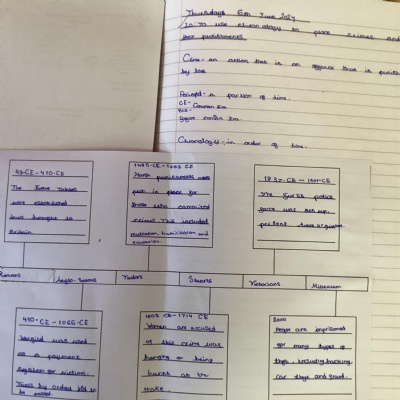 Thursday 6th June 2024
to use chronology to place crimes and
their punishments.
Crime - an action that is an offence that is punish
by law
Period - a portion of time.
CE - Common Era
BCE -
Before common Era.
Chronology - in order of time.
43 CE - 410 CE
The Twelve Tables
were established
laws brought to
Britain
1485 CE - 1603 CE
Harsh punishments were
put in place for
those who committed
crimes. This included
mutilation, humiliation and
execution.
1837 CE - 1901 CE
The first police
force was set up.
prisons
Romans
Anglo-Saxons
Tudors
Stuarts
Victorians
Millennium
410 CE - 1066 CE
Wergild was used
as a payment
system for victims.
Trials by ordeal had to
be
1603 CE - 1714 CE
Women are accused
of this crime was
hanging or being
burnt at the
stake
2000
People are imprisoned
for many types of
theft, including burglary,
car theft and fraud.